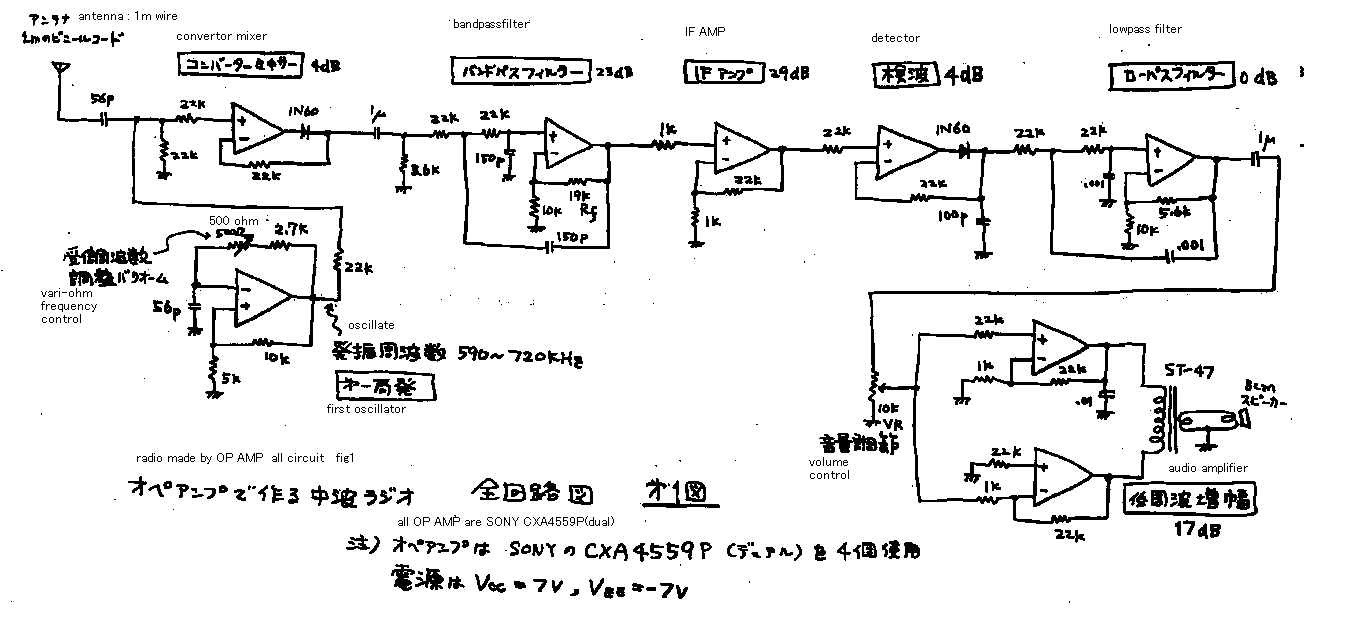 アンテナ antenna : 1m wire
1mのビニールコード
convertor mixer
コンバーターミキサー 4dB
bandpassfilter
バンドパスフィルター 23dB
IF AMP
IFアンプ 29dB
detector
検波 4dB
lowpass filter
ローパスフィルター 0dB
56p
22k
1N60
22k
22k
1μ
3.6k
22k
22k
150p
10k
19k
Rf
150p
1k
22k
1k
22k
1N60
22k
100p
22k
22k
.001
10k
5.6k
.001
1μ
500 ohm
500Ω
2.7k
受信周波数
調整バリオーム
vari-ohm
frequency
control
56p
10k
5k
22k
oscillate
発振周波数 590~720KHz
第一局発
first oscillator
22k
1k
22k
.01
10k
VR
音量調節
volume
control
22k
1k
22k
ST-47
8cm
スピーカー
audio amplifier
低周波増幅
17dB
radio made by OP AMP all circuit fig1
オペアンプで作る中波ラジオ 全回路図 オ1図
all OP AMP are SONY CXA4559P(dual)
注) オペアンプは SONYのCXA4559P (デュアル) を4個使用
電源は Vcc = 7V , VEE = -7V